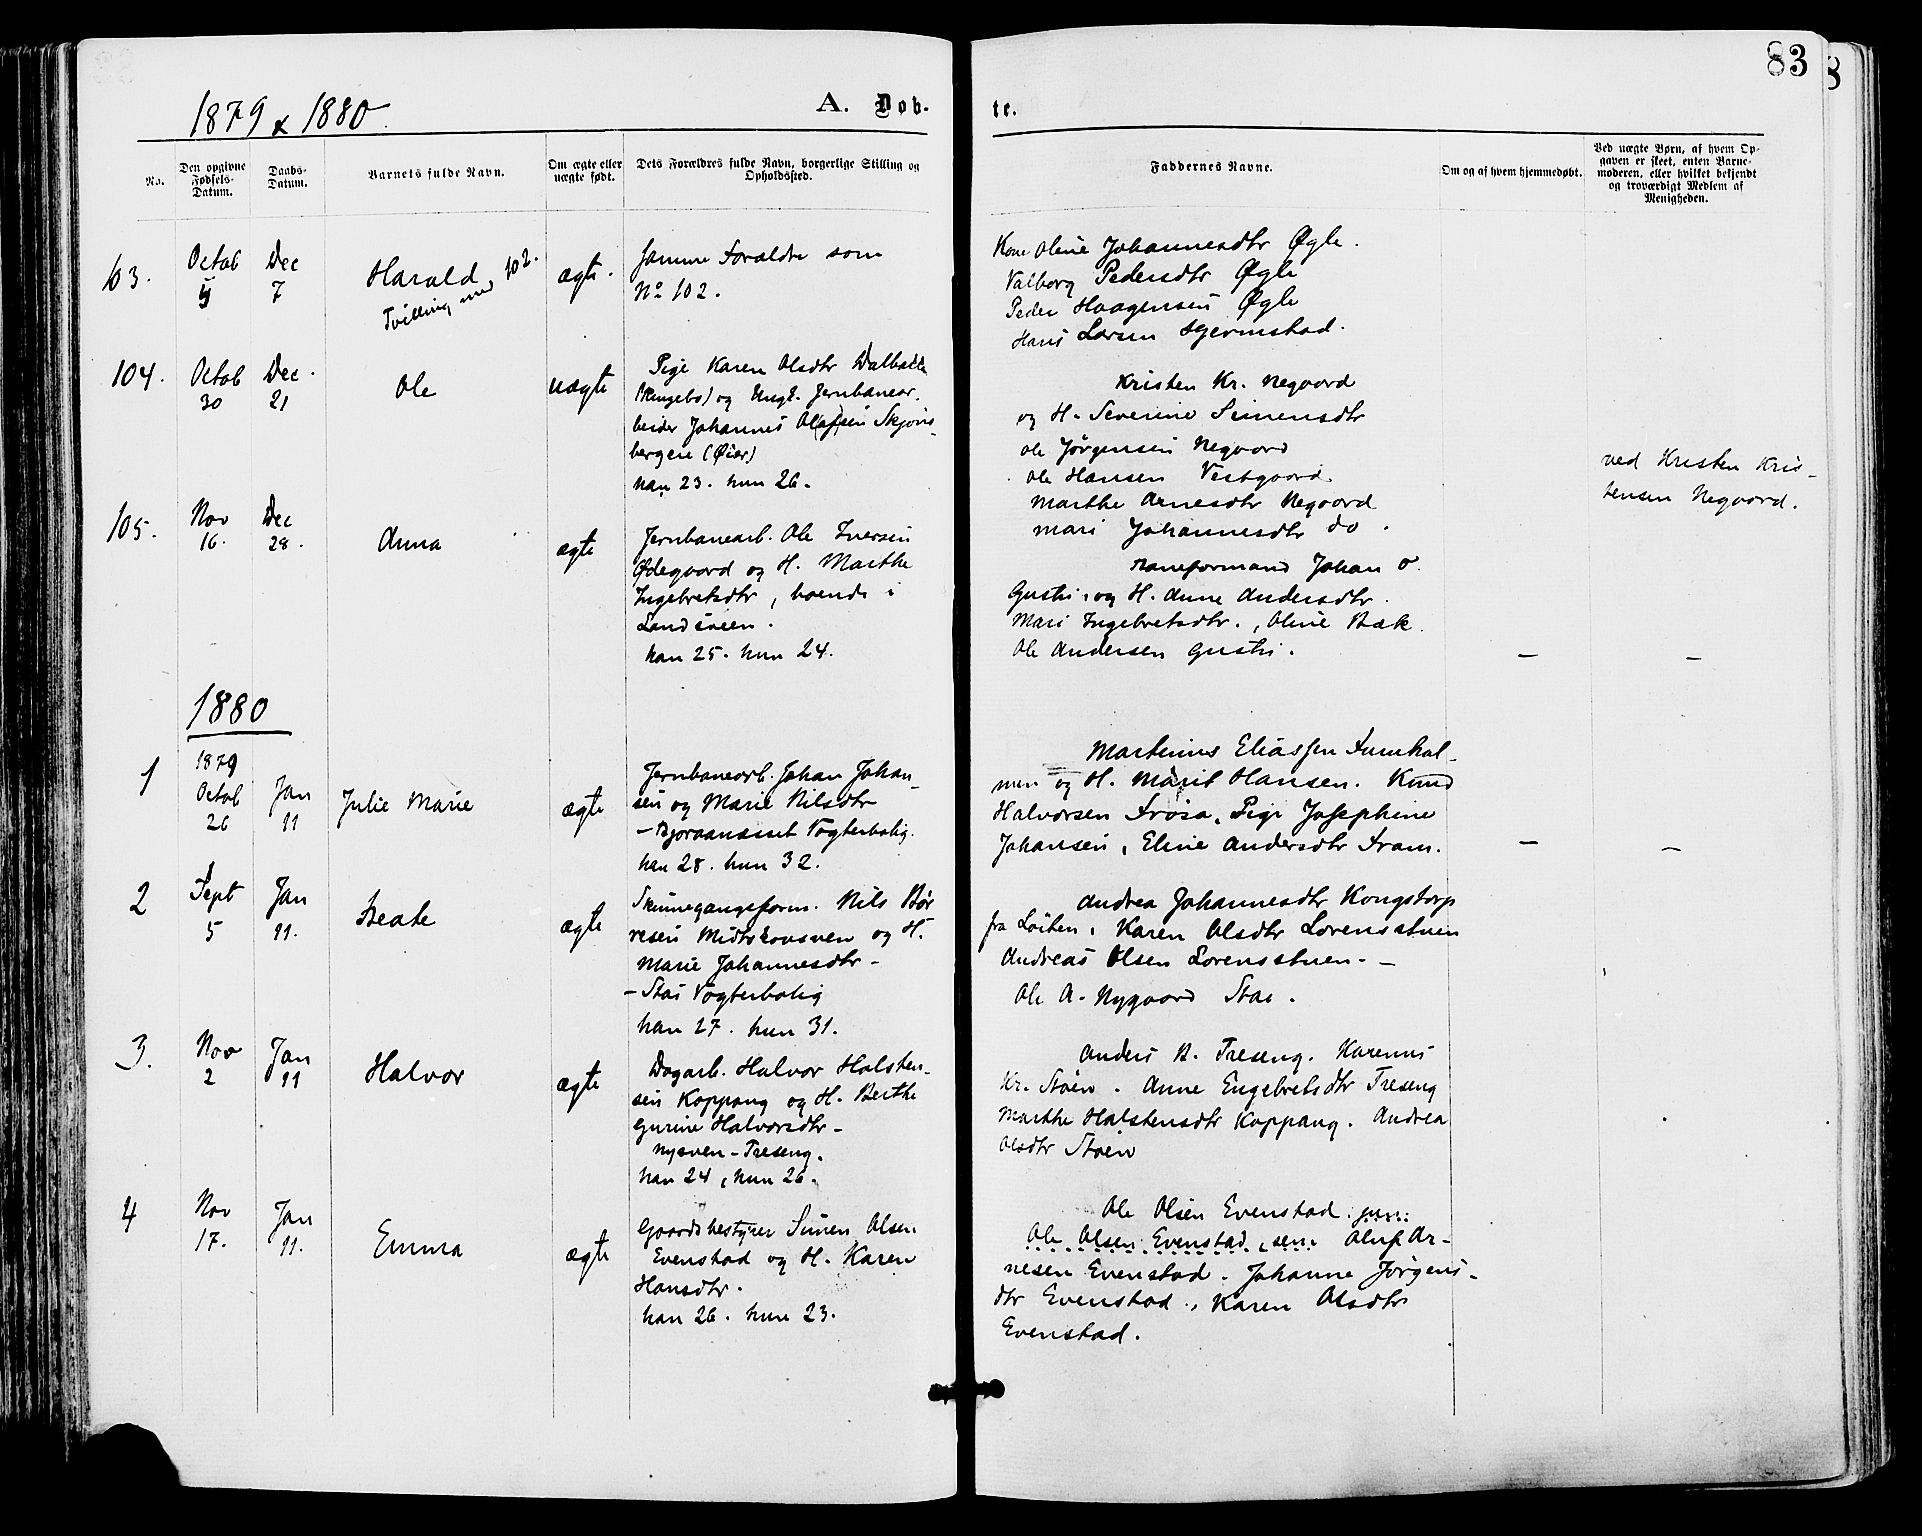 83
1879 & 1880.
A. Døb-
te.
No.
Den opgivne Fødsels-Datum.
Daabs-Datum.
Barnets fulde Navn.
Om ægte eller uægte født.
Dets Forældres fulde Navn, borgerlige Stilling og Opholdssted.
Faddernes Navne.
Om og af hvem hjemmedøbt.
Ved uægte Børn, af hvem Op-
gaven er skeet, enten Barne-
moderen, eller hvilket bekjendt
og troværdigt Medlem af
Menigheden.
103.
Octob
Dec
7
Harald
Tvilling med 102.
ægte.
Samme Forældre som
No 102.
Kone Oline Johannesdtr Øgle.
Valborg Pedersdtr Øgle
Peder Haagensen Øgle
Hans Larsen Hjermstad.
104.
Octob
30
Dec.
21
Ole
uægte
Pige Karen Olsdtr Dalbakk
(Ringebo) og Ungk. Jernbanear.
beider Johannes Olafsen Skjøns-
bergeie (Øier)
han 23. hun 26.
Kristen Kr. Negaard
og H. Severine Simensdtr
Ole Jørgensen Negaard
Ole Hansen Vestgaard.
Marthe Arnesdtr Negaard
Mari Johannesdtr do.
ved Kristen Kris-
tensen Negaard.
105.
Nov
16.
Dec
28.
Anna
ægte
Jernbanearb. Ole Iversen
Ødegaard og H. Marthe
Ingebretsdtr, boende i
han 25. hun 24.
Baneformand Johan O.
Gustu. og H. Anne Andersdtr.
Mari Ingebretsdtr., Oline Bæk.
Ole Andersen Gustu.
—
—
1880
1
1879
Octob
26
Jan
11
Julie Marie
ægte
Jernbanearb. Johan Johan-
sen og Marie Nilsdtr
- Bjøraanæsset Vogterbolig.
han 28. hun 32.
Martinus Eliassen Furuhol-
men og H. Marit Hansen. Knud
Halvorsen Frøsa, Pige Josephine
Johansen, Eline Andersdtr Fram.
—
—
2
Sept
5
Jan
11.
Beate
ægte
Skinnegangsform. Nils Bør
resen Midtskovsven og H.
Marie Johannesdtr -
- Stai Vogterbolig
han 27. hun 31.
Andrea Johannesdtr Kongstorp
fra Løiten, Karen Olsdtr Lorensstuen
Andreas Olsen Lorensstuen. -
Ole A. Nygaard Stai.
3.
Nov
2
Jan
11
Halvor
ægte
Dagarb. Halvor Halsten-
sen Koppang og H. Berthe
Gurine Halvorsdtr -
Nysven - Treseng.
han 24, hun 26.
Anders B. Treseng. Karenus
Kr. Støen. Anne Engebretsdtr Treseng
Marthe Halstensdtr Koppang. Andrea
Olsdtr Støen
4
Nov
17.
Jan
11.
Emma
ægte
Gaardsbestyrer Simen Olsen
Evenstad og H. Karen
Hansdtr.
han 26. hun 23.
Ole Olsen Evenstad jun.
Ole Olsen Evenstad, sen. Oluf Ar-
nesen Evenstad. Johanne Jørgens-
dtr Evenstad., Karen Olsdtr
Evenstad.